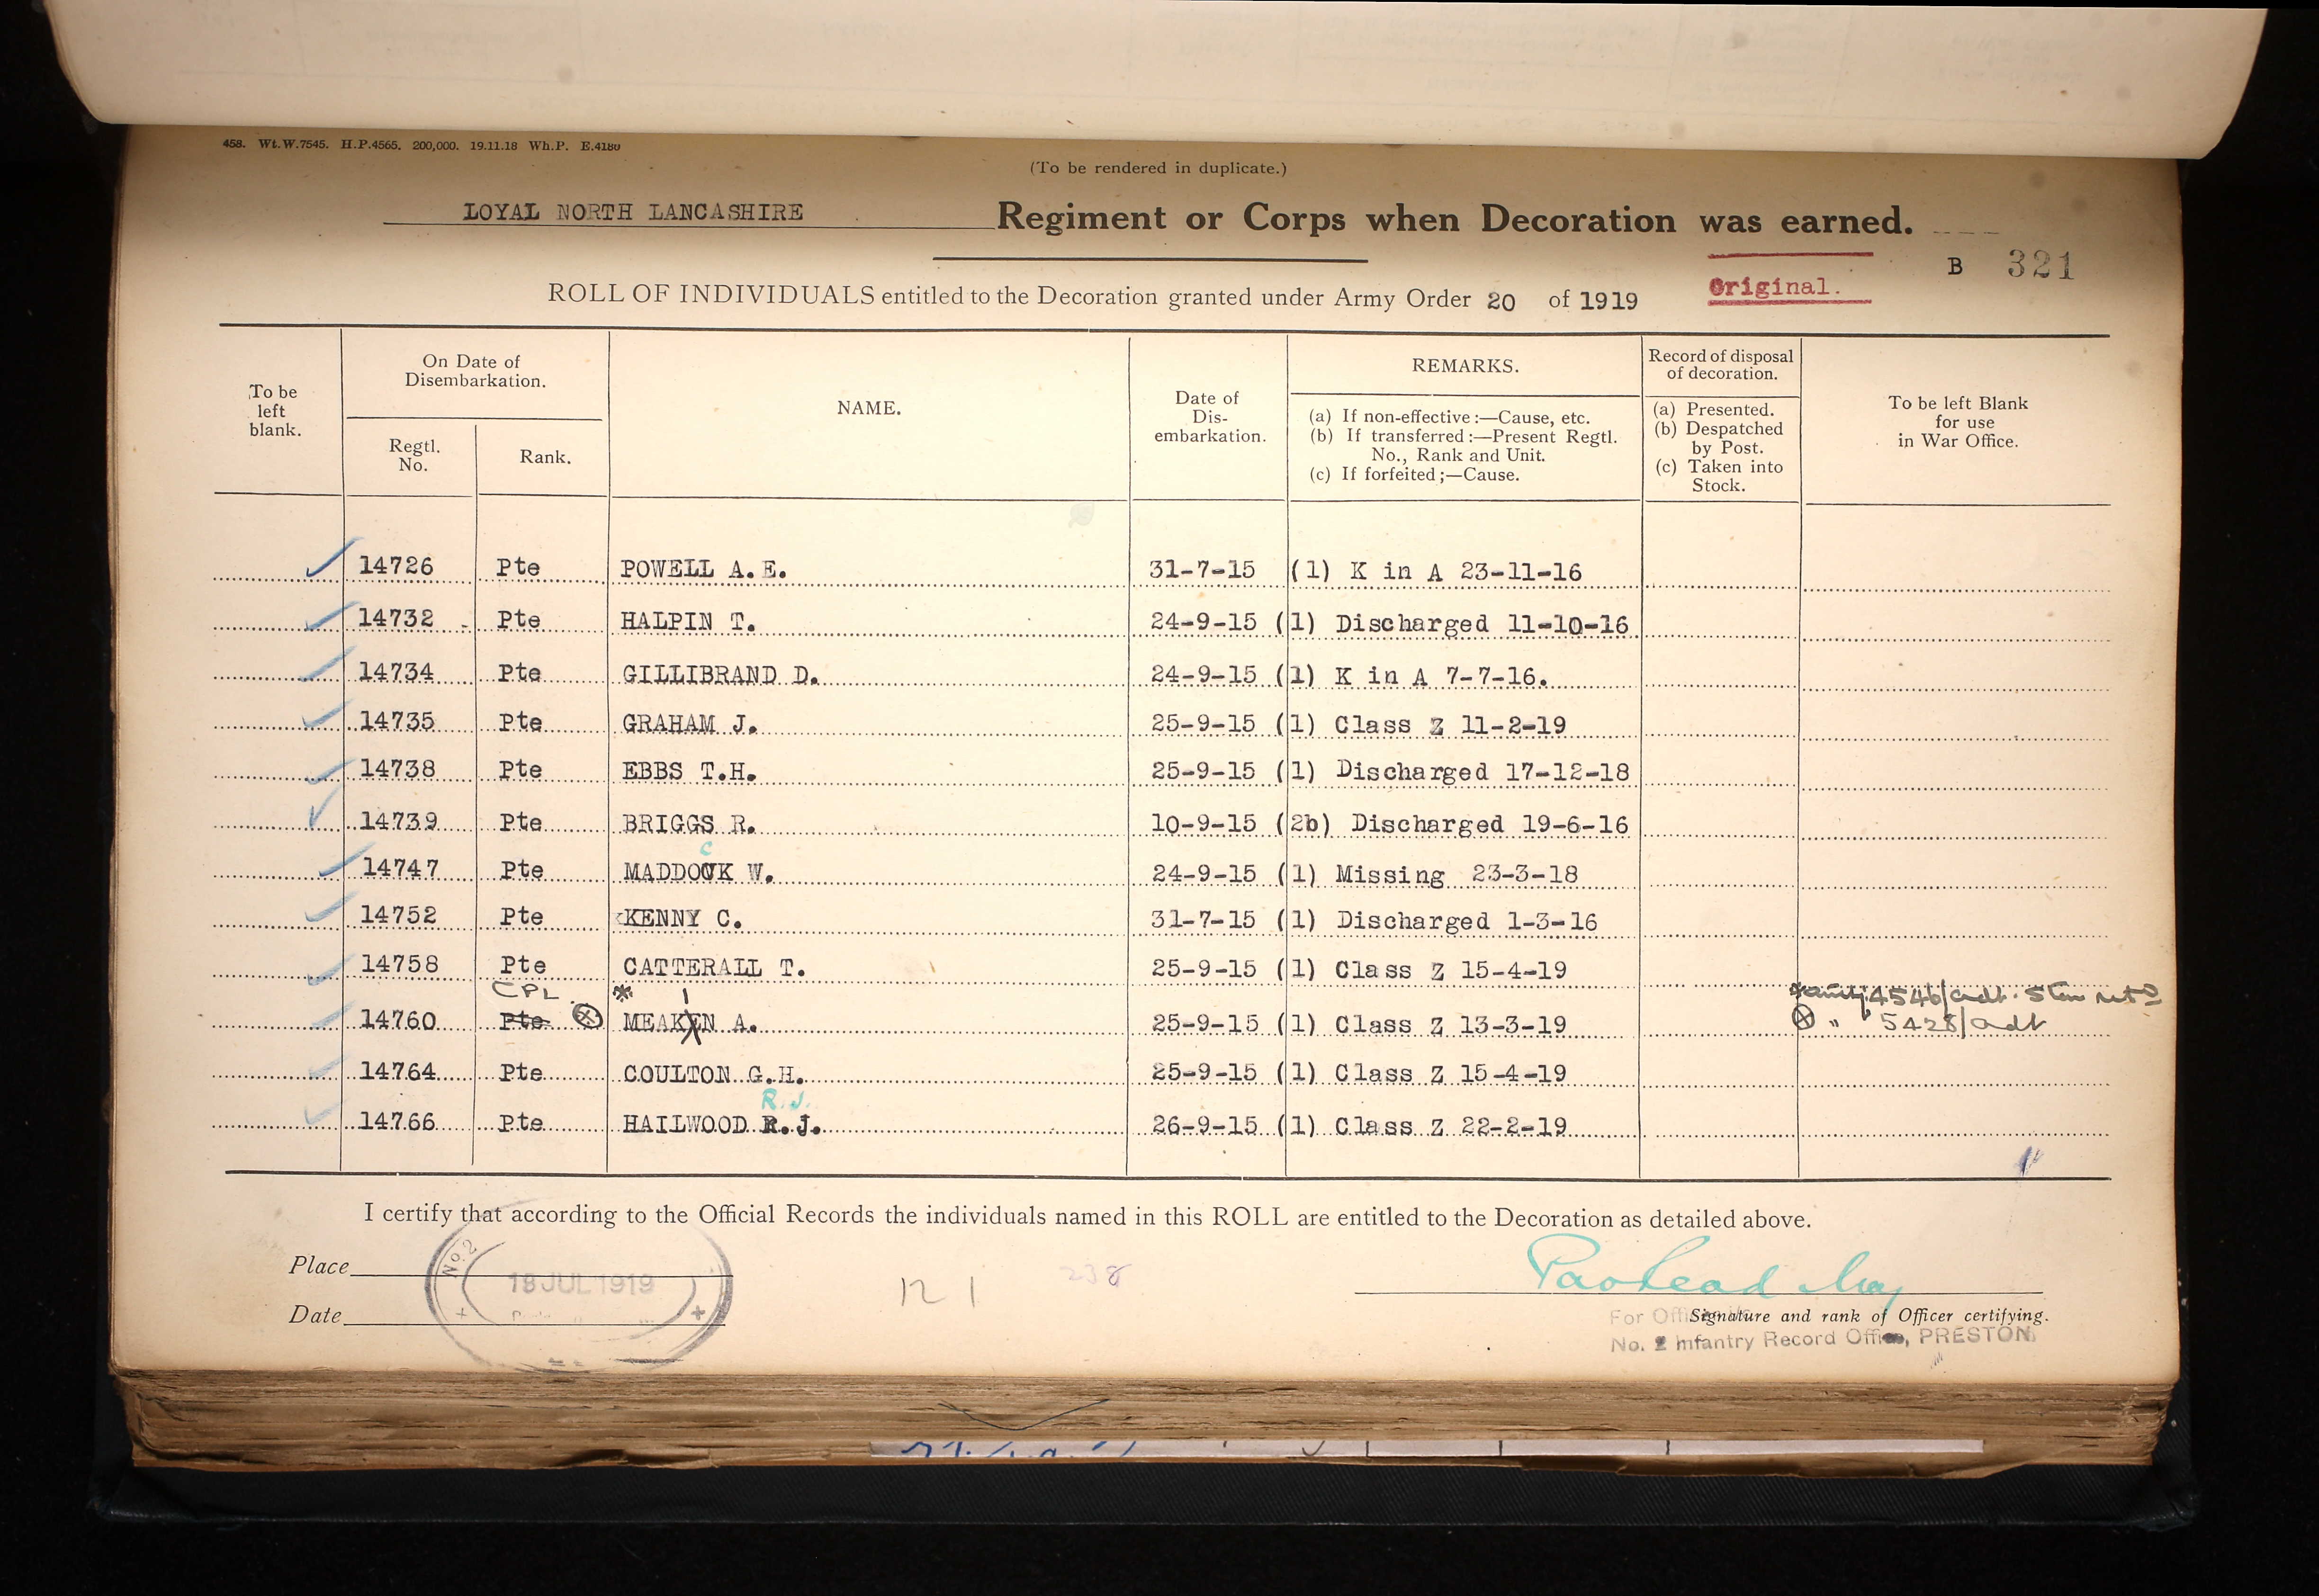 458. Wt.W.7545. H.P.4565. 200,000. 19.11.18 Wh.P. E.4180
(To be rendered in duplicate.)
LOYAL NORTH LANCASHIRE Regiment or Corps when Decoration was earned.
B 321
Original.
ROLL OF INDIVIDUALS entitled to the Decoration granted under Army Order 20 of 1919
To be left blank.
On Date of Disembarkation.
Regtl. No.
Rank.
NAME.
Date of Dis-embarkation.
REMARKS.
(a) If non-effective :—Cause, etc.
(b) If transferred :—Present Regtl. No., Rank and Unit.
(c) If forfeited ;—Cause.
Record of disposal of decoration.
(a) Presented.
(b) Despatched by Post.
(c) Taken into Stock.
To be left Blank for use in War Office.
14726 Pte POWELL A.E. 31-7-15 (1) K in A 23-11-16
14732 Pte HALPIN T. 24-9-15 (1) Discharged 11-10-16
14734 Pte GILLIBRAND D. 24-9-15 (1) K in A 7-7-16.
14735 Pte GRAHAM J. 25-9-15 (1) Class Z 11-2-19
14738 Pte EBBS T.H. 25-9-15 (1) Discharged 17-12-18
14739 Pte BRIGGS R. 10-9-15 (2b) Discharged 19-6-16
C
14747 Pte MADDOCK W. 24-9-15 (1) Missing 23-3-18
14752 Pte KENNY C. 31-7-15 (1) Discharged 1-3-16
14758 Pte CATTERALL T. 25-9-15 (1) Class Z 15-4-19
CPL * I
14760 Pte MEAKEN A. 25-9-15 (1) Class Z 13-3-19
4546/adt.
" 5428/adt
14764 Pte COULTON G.H. 25-9-15 (1) Class Z 15-4-19
R.J.
14766 Pte HAILWOOD R.J. 26-9-15 (1) Class Z 22-2-19
I certify that according to the Official Records the individuals named in this ROLL are entitled to the Decoration as detailed above.
Place
Date
No. 2
18 JUL 1919
121
238
Signature and rank of Officer certifying.
For Offi
No. 2 Infantry Record Office, PRESTON.